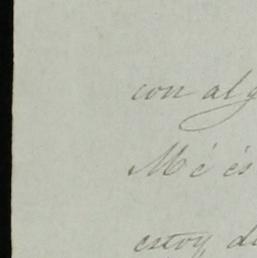 con alg
Mé és
estoy di